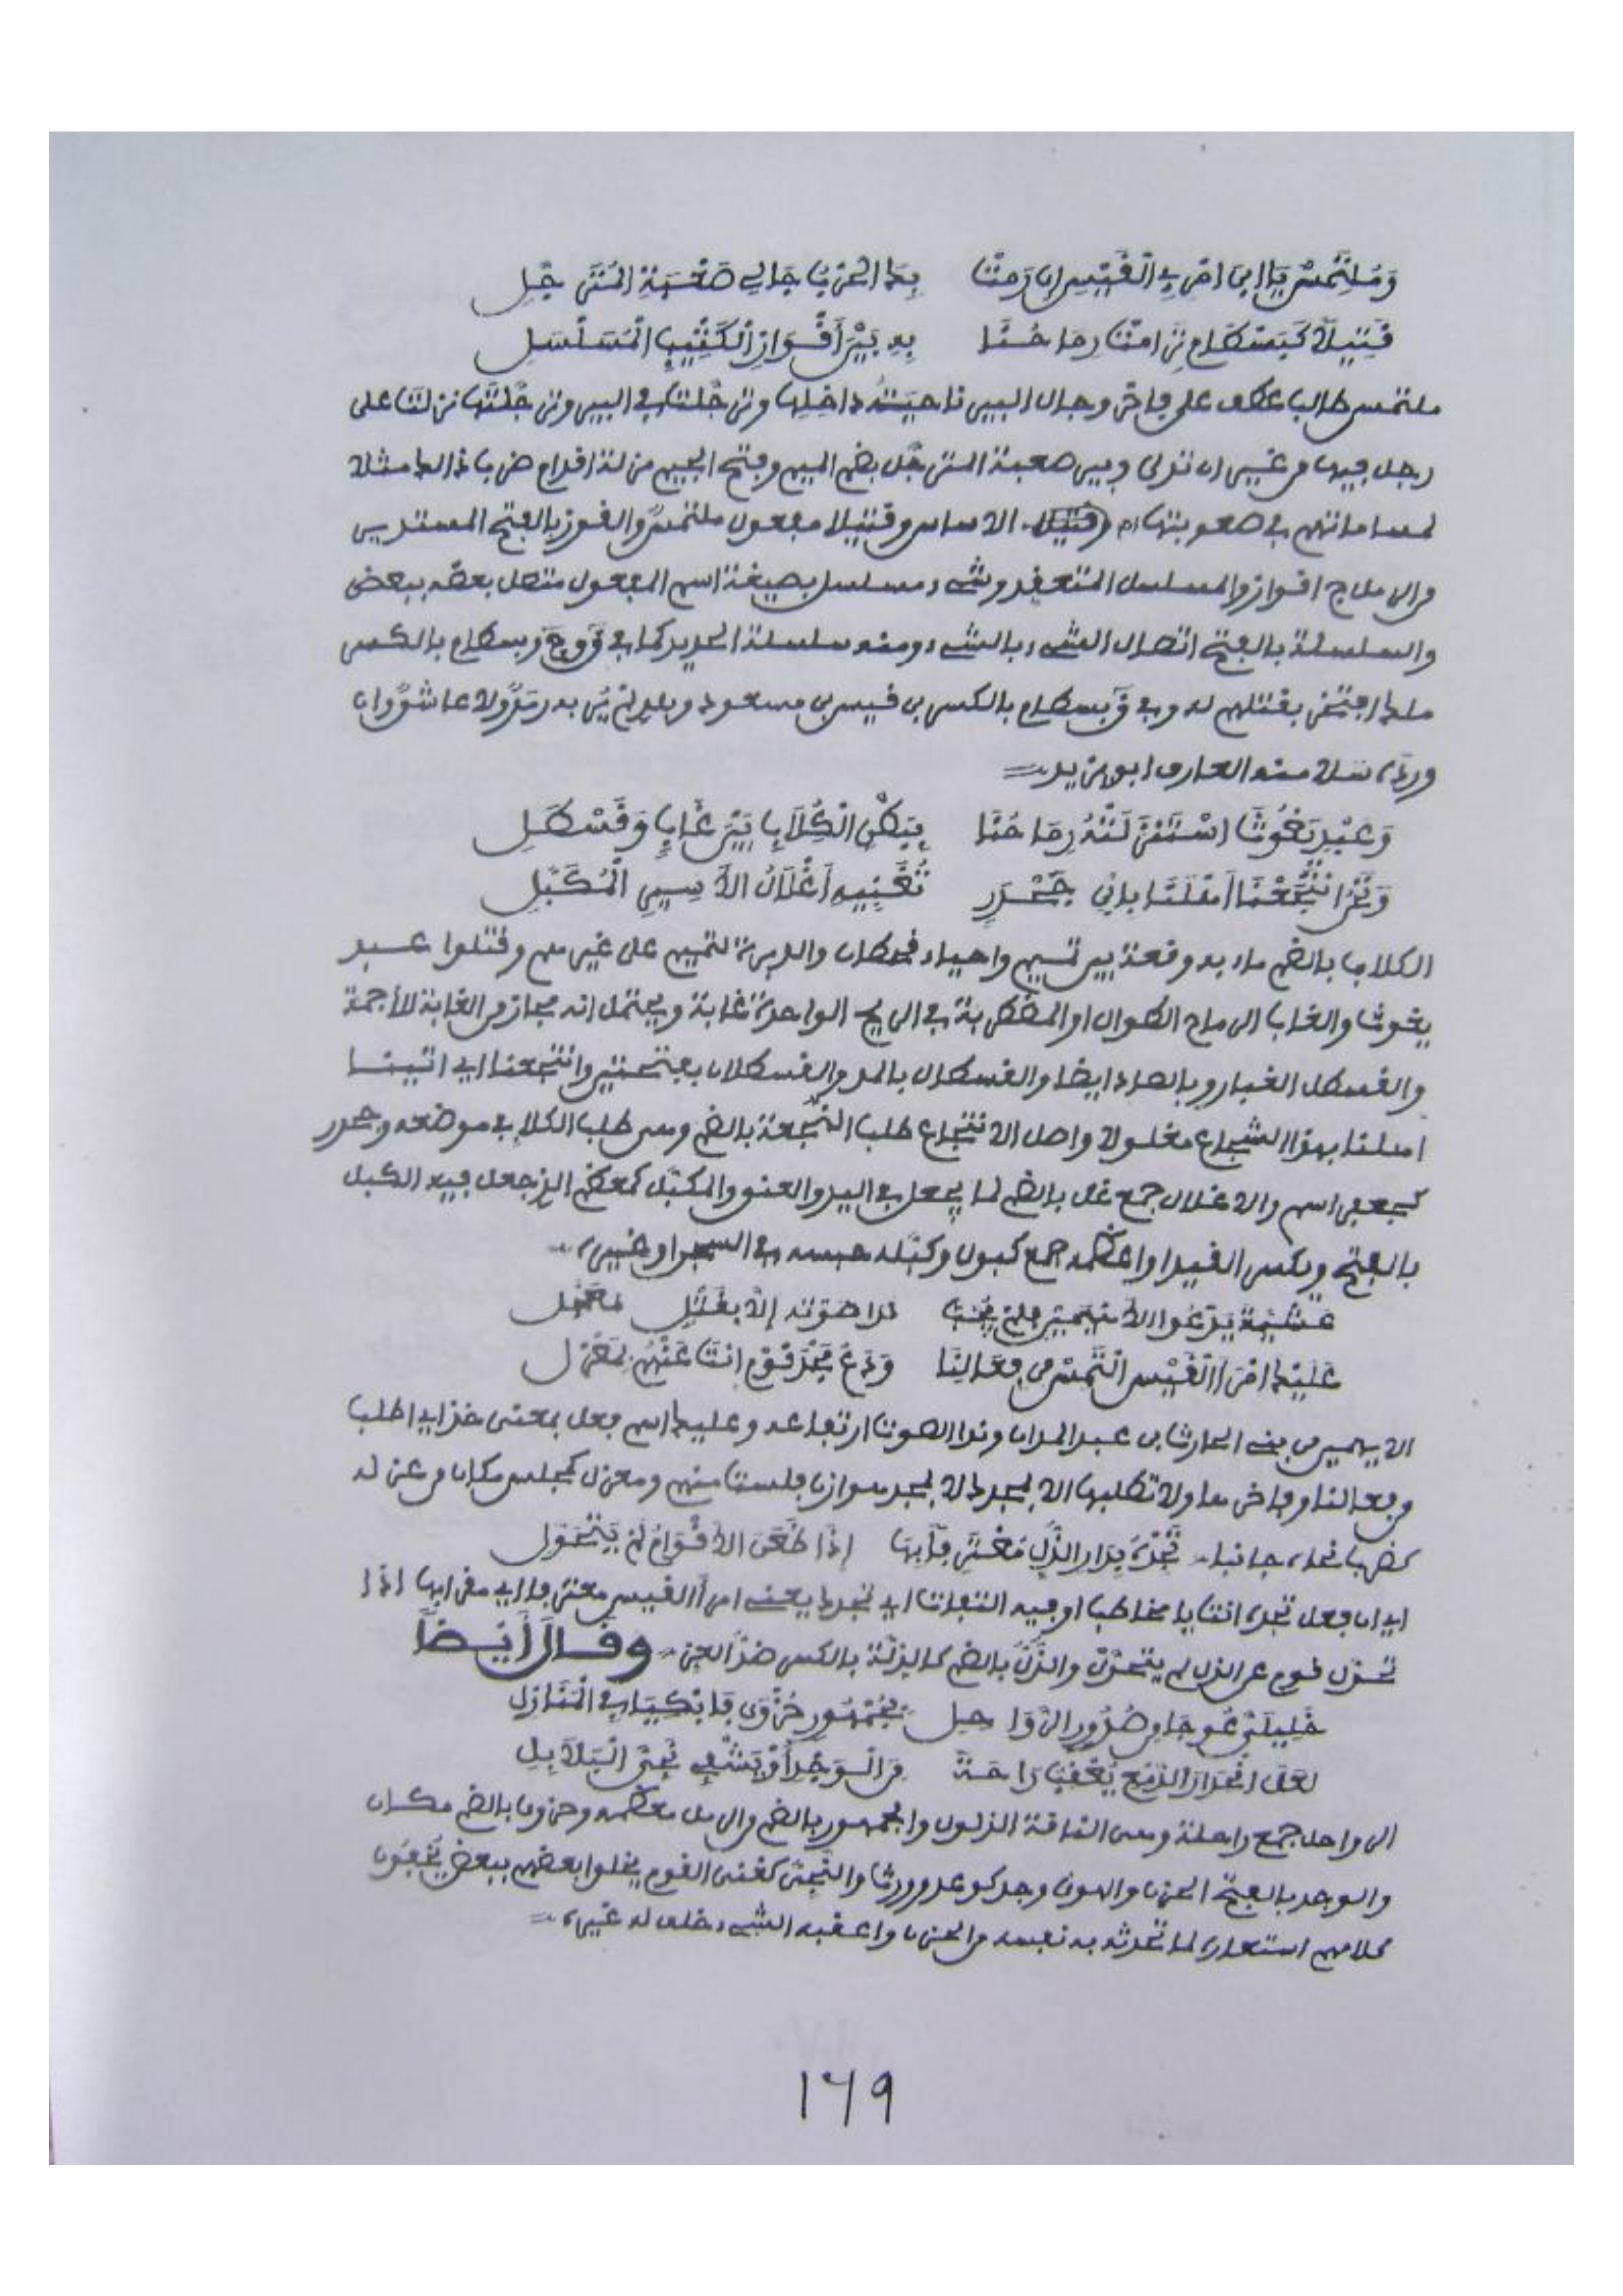 وَمُلْتَمِسْ يَا ابْنَ امْرِئِ الْقَيْسِ إن رَمَتْ بِكَ الْحَرْبُ جَالَيْ صَعْبَةِ الْمُتَرَجَّلِ
قَتِيلًا كَبِسْطَامٍ تَرَامَتْ رِمَاحُنَا بِهِ بَيْنَ أَقْوَازِ الْكَثِيبِ الْمُسَلْسَلِ
ملتمس طالب عطف على فاخر وجال البير ناحيت داخلها وترجلت في البير وترجلتها نزلت على
رجل فيها من غير ان تدلى وبير صعبة المترجل بضم الميم وفتح الجيم مزلة اقدام ضربا مثلا
لمساماتهم في صعوبتها قتيلا الاساس وقتيلا مفعول ملتمس والقوز بالفتح المستدير
من الرمل ج اقواز والمسلسل المتعقد وشيء مسلسل بصيغة اسم المفعول متصل بعضه ببعض
والسلسلة بالفتح اتصال الشيء بالشيء ومنه سلسلة الحديد كما في ق وج وبسطام بالكسر
افتخر بقتلهم له وفي ق بسطام بالكسر بن قيس بن مسعود
العارف ابو يزيد
وَعَبْدَ يَغُوثَ اسْتَنْزَلَتْهُ رِمَاحُنَا بِبَطْنِ الْكُلَابِ بَيْنَ غَابٍ وَقَسْطَلِ
أَغْلَالُ الأَسِيرِ الْمُكَبَّلِ
الكلاب بالضم ماء به وقعة بين تميم واحياء قحطان والدبرة لتميم على غيرهم وقتلوا عبد
يغوث والغاب الرماح الطوال او المضطربة في الريح الواحدة غابة ويحتمل انه مجاز من الغابة للأجمة
والقسطل الغبار وبالصاد ايضا والقسطال بالمد والقسطلان بفتحتين وانتجعنا اي اتينا
املنا بهذا الشجاع مغلولا واصل الانتجاع طلب النجعة بالضم وهي طلب الكلا في موضعه وجحدر
كجعفر اسم والاغلال جمع غل بالضم لما يجعل في اليد والعنق والمكبل كمعظم الذي جعل فيه الكبل
بالفتح ويكسر القيد او اعظمه جمع كبول وكبله حبسه في السجن او غيره
عَشِيَّةَ يَدْعُو الأَيْهَمَيْنِ فَلَمْ يُجَبْ نَدَا صَوْتِهِ إِلَّا بِقَتْلٍ مُعَجَّلِ
عَلَيْكَ امْرَأَ الْقَيْسِ الْتَمِسْ مِنْ فِعَالِنَا وَدَعْ مَجْدَ قَوْمٍ انْتَ عَنْهُمْ بِمَعْزِلِ
الايهمين من بني الحارث بن عبد المدان وندا الصوت ارتفاعه وعليك اسم فعل بمعنى خذ اي اطلب
من فعالنا وفاخر بها ولا تطلبها الا بمجدك لا بمجد هوازن فلست منهم ومعزل كمجلس مكان من عزله
كضرب نحاه جانبا تَجِدْهُ بِدَارِ الذُّلِّ مُعْتَرِفًا بِهَا إِذَا ظَعَنَ الأَقْوَامُ لَمْ يَتَحَوَّلِ
اي ان فعل تجده انت يا مخاطب او فيه التفات اي تجدك يعني امرأ القيس معترفا اي مقرا بها اذا
تحول قوم عن الذل لم يتحول والذل بالضم كالذلة بالكسر ضد العز وقال أيضا
خَلِيلَيَّ عُوجَا مِنْ صُدُورِ الرَّوَاحِلِ بِجُمْهُورِ حُزْوَى فَابْكِيَا فِي الْمَنَازِلِ
لَعَلَّ انْحِدَارَ الدَّمْعِ يُعْقِبُ رَاحَةً مِنَ الْوَجْدِ أَوْ يَشْفِي نَجِيَّ الْبَلَابِلِ
الرواحل جمع راحلة وهي الناقة الذلول والجمهور بالضم من الرمل معظمه وحزوى بالضم مكان
والوجد بالفتح الحزن والهوى وجد كوعد وورث والنجي كغني القوم يخلوا بعضهم ببعض يخفون
كلامهم استعاره لما تحدثه به نفسه من الحزن واعقبه الشيء خلف له غيره
١٦٩